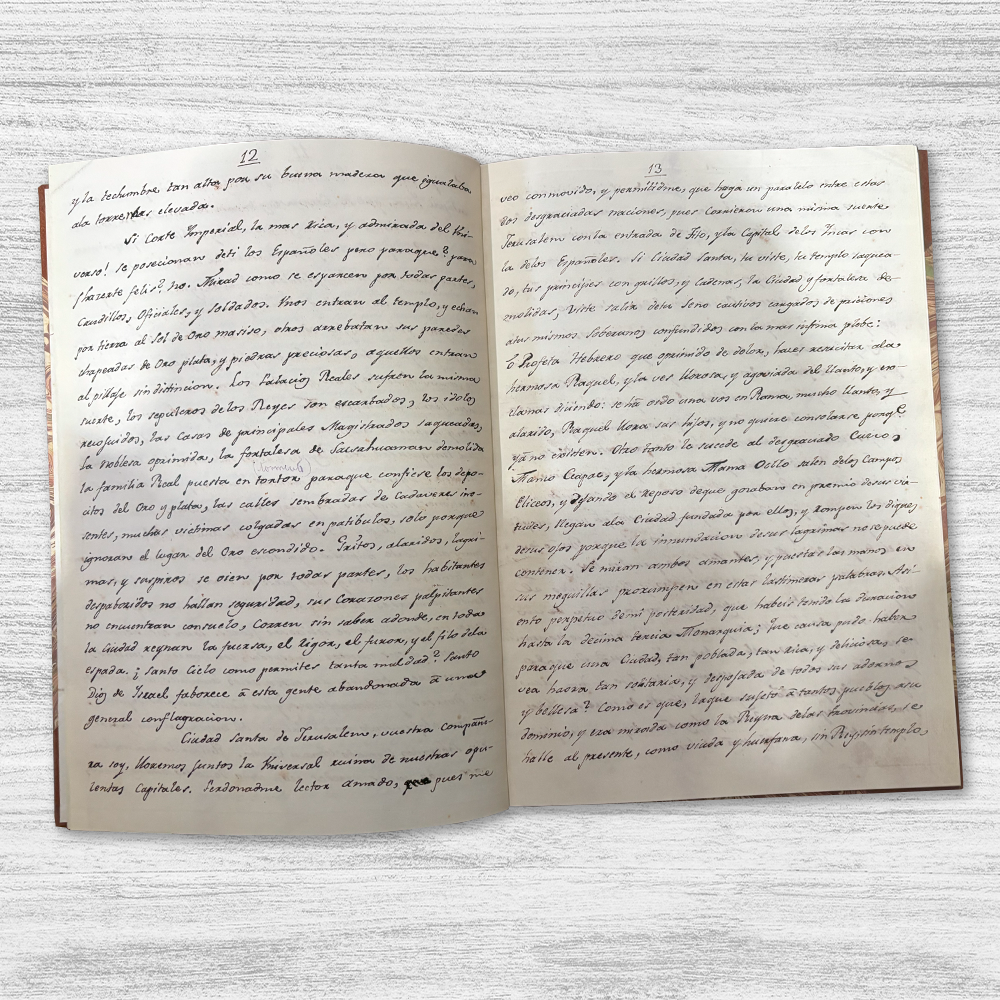 12
y la techumbre tan alta por su buena madera que igualaba
ala torre mas elevada.
Si Corte Imperial, la mas Rica, y admirada del Uni-
verso! se posecionan deti los Españoles pero paraque? para
hazerte felis? no. Mirad como se esparcen por todas partes,
Caudillos, Oficiales, y soldados. Unos entran al templo, y echan
por tierra al sol de Oro masiso, otros arrebatan sus paredes
chapeadas de Oro plata, y piedras preciosas, aquellos entran
al pillaje sin distincion. Los Palacios Reales sufren la misma
suerte, los sepulcros delos Reyes son escarbados, los idolos
recojidos, las Casas de principales Magistrados saqueadas,
la noblesa oprimida, la fortalesa de Sacsahuaman demolida
(tormento)
la familia Real puesta en tortor paraque confiese los depo-
citos del Oro y plata, las calles sembradas de Cadaveres ino-
sentes, muchas victimas colgadas en patibulos, solo porque
ignoran el lugar del Oro escondido. Gritos, alaridos, lagri-
mas, y suspiros se oien por todas partes, los habitantes
despaboridos no hallan seguridad, sus Corazones palpitantes
no encuentran consuelo, Corren sin saber adonde, en toda
la Ciudad reynan la fuersa, el rigor, el furor, y el filo dela
espada. ¡ Santo Cielo como permites tanta maldad? Santo
Dios de Israel faborece â esta gente abandonada â una
general conflagracion.
Ciudad santa de Jerusalem, vuestra compañe-
ra soy, lloremos juntos la Universal ruina de nuestras opu-
lentas Capitales. Perdonadme lector amado, pues me
13
veo conmovido, y permitidme, que haga un paralelo entre estas
dos desgraciadas naciones, pues Corrieron una misma suerte
Jerusalem conla entrada de Tito, y la Capital delos Incas con
la delos Españoles. Si Ciudad Santa, tu viste, tu templo saquea-
do, tus principes con grillos, y cadenas, la Ciudad y fortalesa de-
molidas, Viste salir detu seno cautivos cargados de priciones
atus mismos Soberanos confundidos con la mas infima plebe:
o Profeta Hebreo que oprimido de dolor, haces resucitar ala
hermosa Raquel, y la ves llorosa, y agoviada del llanto, y ex-
clamas diciendo: se há oido una vos en Rama, mucho llanto, y
alarido, Raquel llora sus hijos, y no quiere consolarse porqe
yá no existen. Otro tanto le sucede al desgraciado Cusco,
Manco Ccapac, y la hermosa Mama Ocllo salen delos Campos
Eliceos, y dejando el reposo deque gosaban en premio desus vir-
tudes, llegan ala Ciudad fundada por ellos, y rompen los diques
desus ojos porque la innundacion desus lagrimas no se puede
contener. Se miran ambos amantes, y puestas las manos en
sus megillas prorrumpen en estas lastimeras palabras. Asi-
ento perpetuo demi posteridad, que habeis tenido la duracion
hasta la decima tercia Monarquia; Que causa pudo haber
paraque una Ciudad, tan poblada, tan rica, y deliciosa, se-
vea haora, tan solitaria, y despojada de todos sus adornos
y bellesa? Como es que, laque sujetó â tantos pueblos asu
dominio, y era mirada como la Reyna delas Provincias, se
halle al presente, como viuda y huerfana, sin Rey, sin templo,